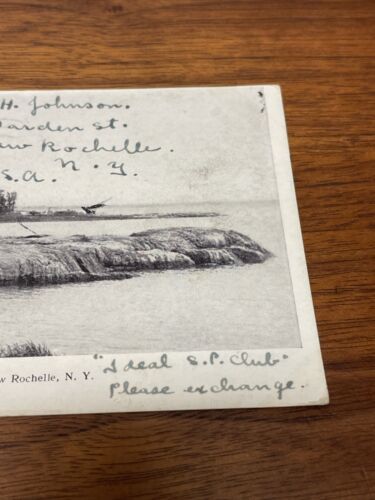 H. Johnson.
arden St.
ew Rochelle.
N. Y.
S.A.
w Rochelle, N. Y.
"Ideal S.P. Club"
Please exchange.